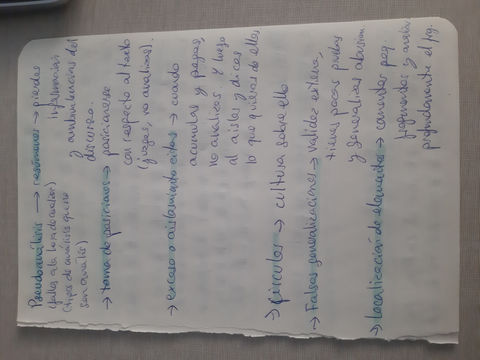 Pseudoanálisis → resúmenes → pierdes
(fallos a la hora de analizar) información
(tipos de análisis que no y ambivalencias del
son análisis) discurso.
→ toma de posiciones → posicionarse
con respecto al texto
(juzgas, no analizas).
→ exceso o aislamiento citas → cuando
acumulas y pegas,
no analizas y luego
al aislar y dices
lo que quieras de ellas.
→ circular → cultura sobre ello.
→ Falsas generalizaciones → validez externa,
tienes pocas pruebas
y generalizas
→ Localización de elementos → comentar peq.
fragmentos y
profundamente el frag.